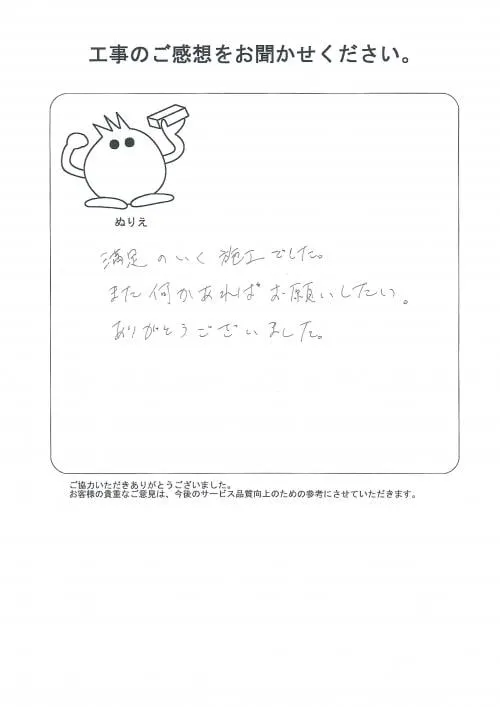 工事のご感想をお聞かせください。
ぬりえ
満足のいく施工でした。
また何かあればお願いしたい。
ありがとうございました。
ご協力いただきありがとうございました。
お客様の貴重なご意見は、今後のサービス品質向上のための参考にさせていただきます。